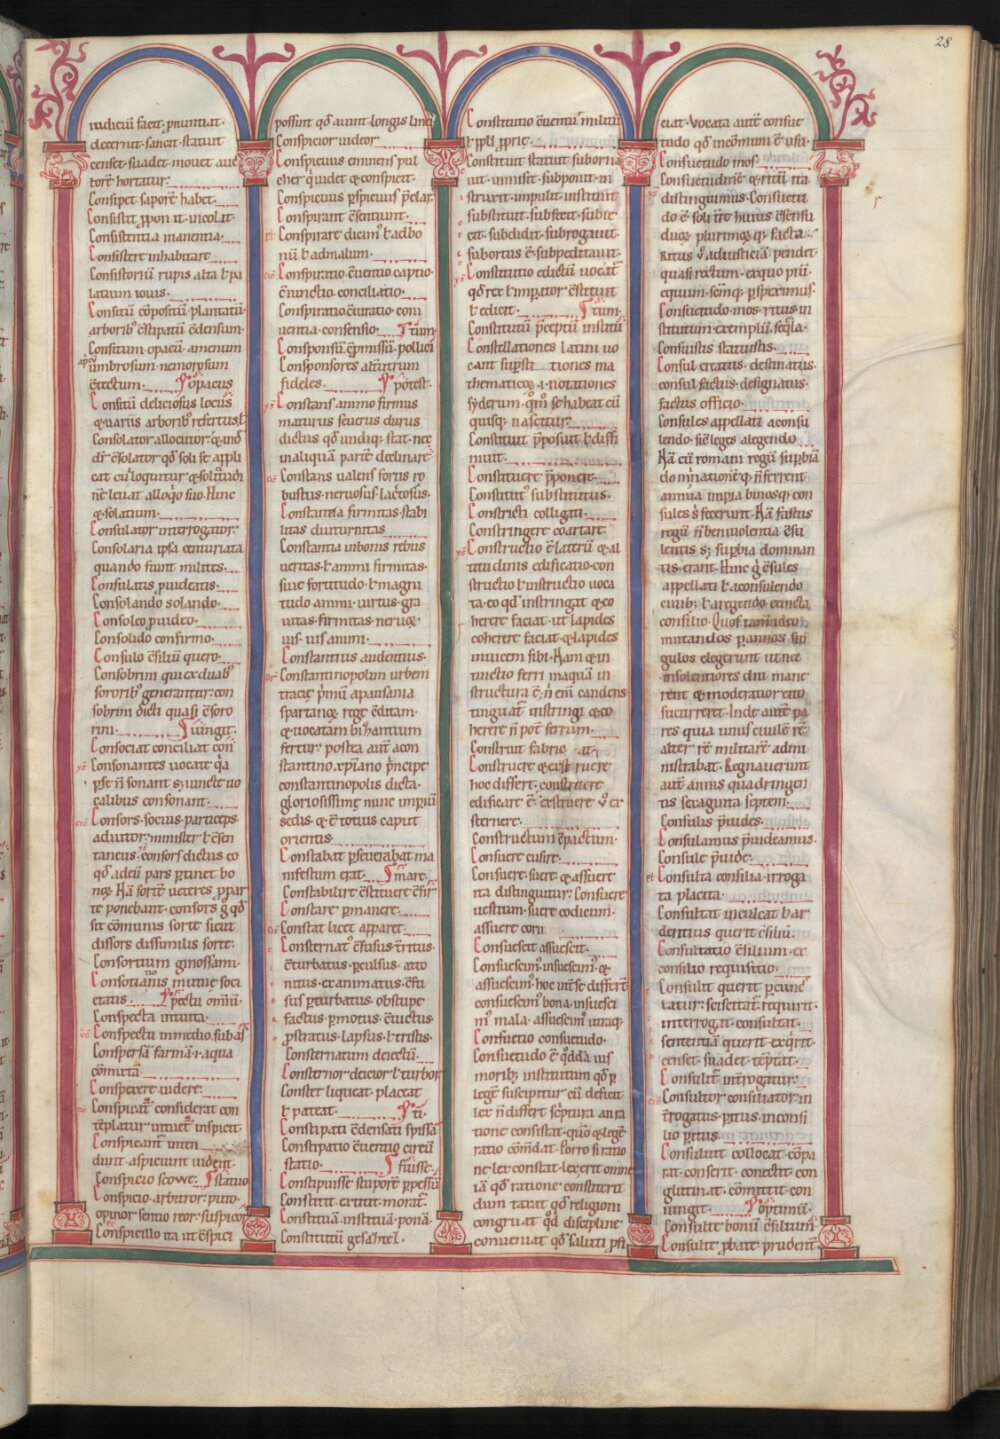 28
iudiciū facit. ꝓnuntiat.
decernit. sancit. statuit
censet. suadet. mouet. auc
torē hortatur.
Consipet saporē habet.
Consistentia manentia.
Consistere inhabitare.
Consistoriū rupis alta ł pa
latium iouis.
Consitū cōpositū plantatū
arborib; cōstipatū cōdensum.
Consitum opacū. amenum
umbrosum. nemorosum
cōtectum. opacus
Consitū deliciosus locus
Consolator allocutor.
Consulator interrogator.
Consolaria ipsa centuriata
quando fiunt milites.
Consulatis ꝓuideatis.
Consolando solando.
Consoleo ꝓuideo.
Consolido confirmo.
Consulo cōsiliū quero.
Consobrini qui ex duab;
sororib; generantur. con
sobrini dicti quasi cōsoro
rini. iungit.
Consociat conciliat con
Consonantes uocate q̄a
ꝑ se n̄ sonant s; iuncte uo
calibus consonant.
Consors. socius. particeps.
adiutor. minister ł cōsen
taneus. consors dictus eo
qđ adeū pars ꝑtinet bo
te ponebant. consors g̊ qđ
sit cōmunis sorte sicut
dissors dissimilis sorte.
Consotianis mutue soci
etatis.
Conspecta intuita.
Conspectu inmedio. sub
Conspersā farinā .i. aqua
cōmixtā.
Conspexere uidere.
Conspicat̄ considerat con
tēplatur intuet̄ inspicit.
Conspicant̄ inten
dunt. aspiciunt uident.
Conspicio. arbitror. puto.
opinor sentio reor. suspicor
Conspicillo ita ut cōspici
possint qđ aiunt longis linei
Conspicior uideor.
Conspicuus eminens pul
cher quidet & conspicit.
Conspicuus ꝑspicuus p̄clar
Conspirant cōsentiunt.
nū ł admalum.
Conspiratio cōuentio captio.
cōiunctio. conciliatio.
Conspiratio cōiuratio. con
uentia. consensio. tium
Consponsores
fideles. potest.
Constans animo firmus
maturus seuerus durus
dictus qđ undiq; stat. nec
inaliquā partē declinare
Constans ualens fortis ro
bustus. neruosus lacertosus.
Constantia firmitas. stabi
litas diuturnitas
Constantia inbonis rebus
ueritas. ł animi firmitas.
siue fortitudo. ł magni
tudo animi. uirtus. gra
uitas. firmitas. neruo.
uis. uis animi.
Constantius audentius.
Constantinopolim urbem
tracie. p̄mū apausania
spartano rege cōditam.
& uocatam bizantium
fertur. postea aut acon
stantino xp̄iano p̄ncipe.
constantinopolis dicta.
gloriosissime nunc impiū
sedis. & ē totius caput
orientis.
Constabat ꝑseuerabat ma
nifestum erat. mare.
Constabilire cōstituere cōfir
Constare ꝑmanere.
Constat licet apparet.
Consternat cōfusus. tritus.
cōturbatus. ꝑculsus. atto
nitus. exanimatus. cōfu
sus ꝑturbatus. obstupe
factus. ꝑmotus. cōuictus.
ꝓstratus. lapsus. ł tristis.
Consternatum deiectū.
Consternor. deicior ł turbor
Constet liqueat. placeat
ł pateat. ti.
Constipati cōdensati spissa
Constipatio cōuentio circū
statio. fuisse.
Constituā. instituā. ponā.
Constitutio cōuentū militū
ł ppłi ꝓprie.
Constituit statuit suborna
uit. inmisit. subponit. in
struxit. impulit. instituit
substituit. subfecit. subie
cit. subdidit. subrogauit.
subortus ē. subpeditauit.
Constitutio edictū uocat̄
qđ rex ł imꝑator cōstituit
ł edicit. tum.
Constitutū p̄ceptū institū
Constellationes latini uo
cant supsti tiones ma
thematicoꝝ .i. notationes
syderum. qm̄ sehabeat cū
quisq; nascitur.
Constituit p̄posuit ł diffi
niuit.
Constituere p̄ponere.
Constitut; substitutus.
Constricti colligati.
Constringere coartare.
Constructio ē laterū & al
titudinis edificatio. con
structio ł instructio uoca
ta. eo qđ instringat & co
herere faciat. ut lapides
coherere faciat. & lapides
inuicem sibi. Nam & in
tinctio ferri inaquā in
structura ē. n̄ em̄ candens
tinguat̄ instringi & co
herere n̄ pot ferrum.
Construit fabric at.
Construere & exstruere
hoc differt. construere
edificare ē. exstruere u̇ ex
sternere.
Constructum cōpactum.
Consuere cusire.
Consuere. suere & assuere
ita distinguitur. Consuere
uestium. suere codicum.
assuere corii.
Consuescit assuescit.
Consuescim; insuescim; &
assuescim; hoc int̄ se differt
consuescim; bona. insuesci
m; mala. assuescim; utraq;
Consuetio consuetudo.
Consuetudo ē qđda ius
morib; institutum qđ ꝓ
lege suscipitur cū deficit
lex n̄ differt scriptura an ra
tione consistat. quo & legē
ratio cōmdat. Porro si ratio
ne lex constat. lex erit omne
iā qđ ratione constiterit
dum taxat qđ religioni
congruat. qđ discipline
conueniat. qđ saluti ꝓfi
ciat. vocata autē consue
tudo qđ incōmuni ē usu.
Consuetudo mos.
Consuetudinē & ritū ita
distinguimus. Consuetu
do ē soli rē huius cōsensu
Ritus u̇ adiusticiā pendet.
quasi rectum. exquo piū
equum.
Consuetudo. mos. ritus. in
stitutum. exemplū. seq̄la.
Consuistis statuistis.
Consul creatus. destinatus.
consul factus. designatus.
factus officio.
Consules appellati aconsu
lendo. sic leges alegendo.
Nā cū romani regū supbiā
dominationē q; n̄ ferrent.
annua impia binosq; con
sules s̄ fecerunt. Nā fastus
regū n̄ beniuolentia cōsu
lentis s; supbia dominan
tis erant. Hinc g̊ cōsules
appellati ł aconsulendo
ciuib; ł aregendo cuncta
consilio. Quos tamideo
mutandos ꝑ annos sin
gulos elegerunt. ut nec
insolentiores diu mane
rent & moderatior cito
sucurreret. Inde autē pa
res quia unus ciuilē rē
alter rē militarē admi
nistrabat. Regnauerunt
aut annis quadringen
tis sexaginta septem.
Consulis ꝓuides.
Consulamus ꝓuideamus.
Consule ꝓuide.
Consulta consilia. irroga
ta placita.
Consultat inculcat ł ar
dentius querit cōsiliū.
Consultatio cōsilium. ex
consilio requisitio.
Consulit querit.
latur. sciscitat̄. requirit.
interrogat. consultat.
sententiā querit. exq̄rit.
censet. suadet. tēptat.
Consulit̄ int̄rogatur.
Consultor consiliator in
t̄rogatus. ꝑitus. inconsi
lio ꝑitus.
Consuluit collocat. cōpa
rat. conserit. conectit. con
glutinat. cōmittit. con
iungit. optimū.
Consulit bonū cōsilium.
Consulte ꝓbate. prudent̄.